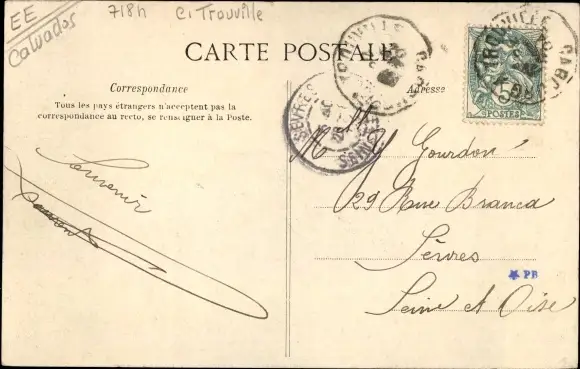 EE
Calvados
718h
C. Trouville
CARTE POSTALE
Correspondance
Tous les pays étrangers n'acceptent pas la
correspondance au recto, se renseigner à la Poste.
Adresse
TROUVILLE
TROUVILLE
5
POSTES
SÈVRES
Souvenir
Gourdon
29 Rue Branca
Sèvres
★ PB
Seine et Oise